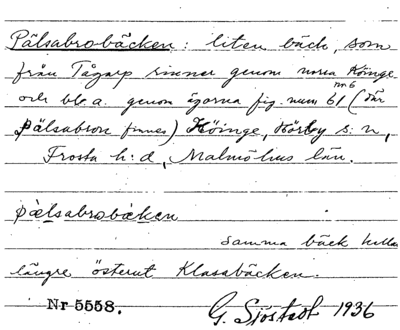 Pälsabrobäcken: liten bäck, som
från Tågarp rinner genom norra Köinge
och bl. a. genom ägorna fig. num 61 (där
nr 6
Pälsabron finnes) Köinge, Hörby s:n,
Frosta h:d, Malmöhus län.
pälsabrobäken
samma bäck heter
längre österut Klasabäcken.
Nr 5558. G. Sjöstedt 1936